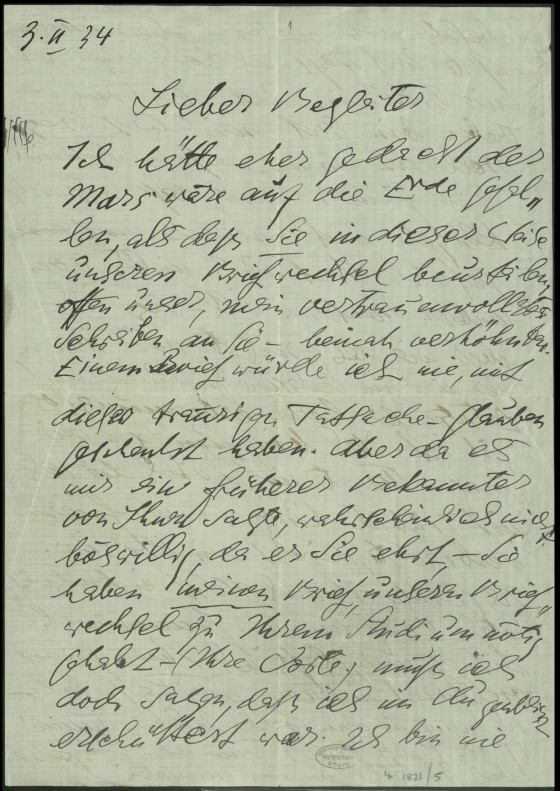 3. II 34
1
Lieber Begleiter
Ich hätte eher gedacht der
Mars wäre auf die Erde gefal„
len, als daß Sie in dieser Weise
unseren Briefwechsel beurteilen
offen unser, mein vertrauenvollstes
Schreiben an Sie – beinah verhöhnten.
Einem Brief würde ich nie, mit
dieser traurigen Tatsache – glauben
geschenkt haben. Aber da es
mir ein früherer Bekannter
von Ihnen sagte, wahrscheinlich nicht
böswillig, da er Sie ehrt, – Sie
haben meinen Brief, unseren Brief„
wechsel zu Ihrem Studium nötig
gehabt – (Ihre Worte) muß ich
doch sagen, daß ich im Augenblick
erschüttert war. Ich bin nie
4° 1821/5